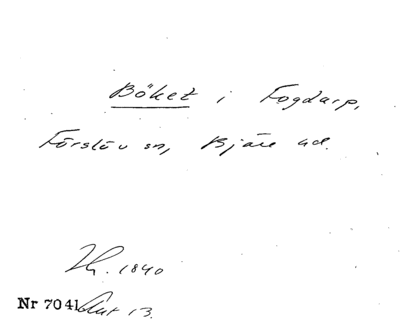 Böket i Fogdarp,
Förslöv sn, Bjäre hd.
Th. 1840
Nr 7041 Akt 13.